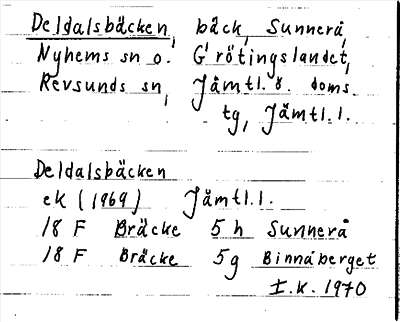 Deldalsbäcken, bäck, Sunnerå,
Nyhems sn o. Grötingslandet,
Revsunds sn, Jämtl. ö. doms.
tg, Jämtl. l.
Deldalsbäcken
ek (1969) Jämtl. l.
18 F Bräcke 5 h Sunnerå
18 F Bräcke 5g Binnåberget
I.K. 1970